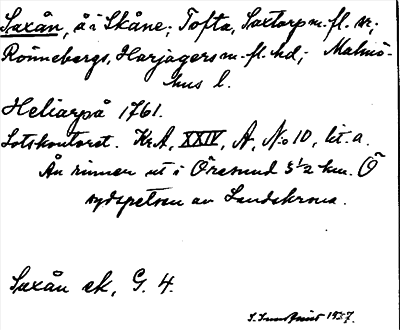 Saxån, å i Skåne; Tofta, Saxtorp m. fl. sr;
Rönnebergs, Harjagers m. fl. hd; Malmö-
hus l.
Heliarpå 1761.
Lotskontoret. KrA, XXIV, A, No 10, lit. a.
Ån rinner ut i Öresund 5 1/2 km. Ö
sydspetsen av Landskrona.
Saxån ek, G. 4.
1937.